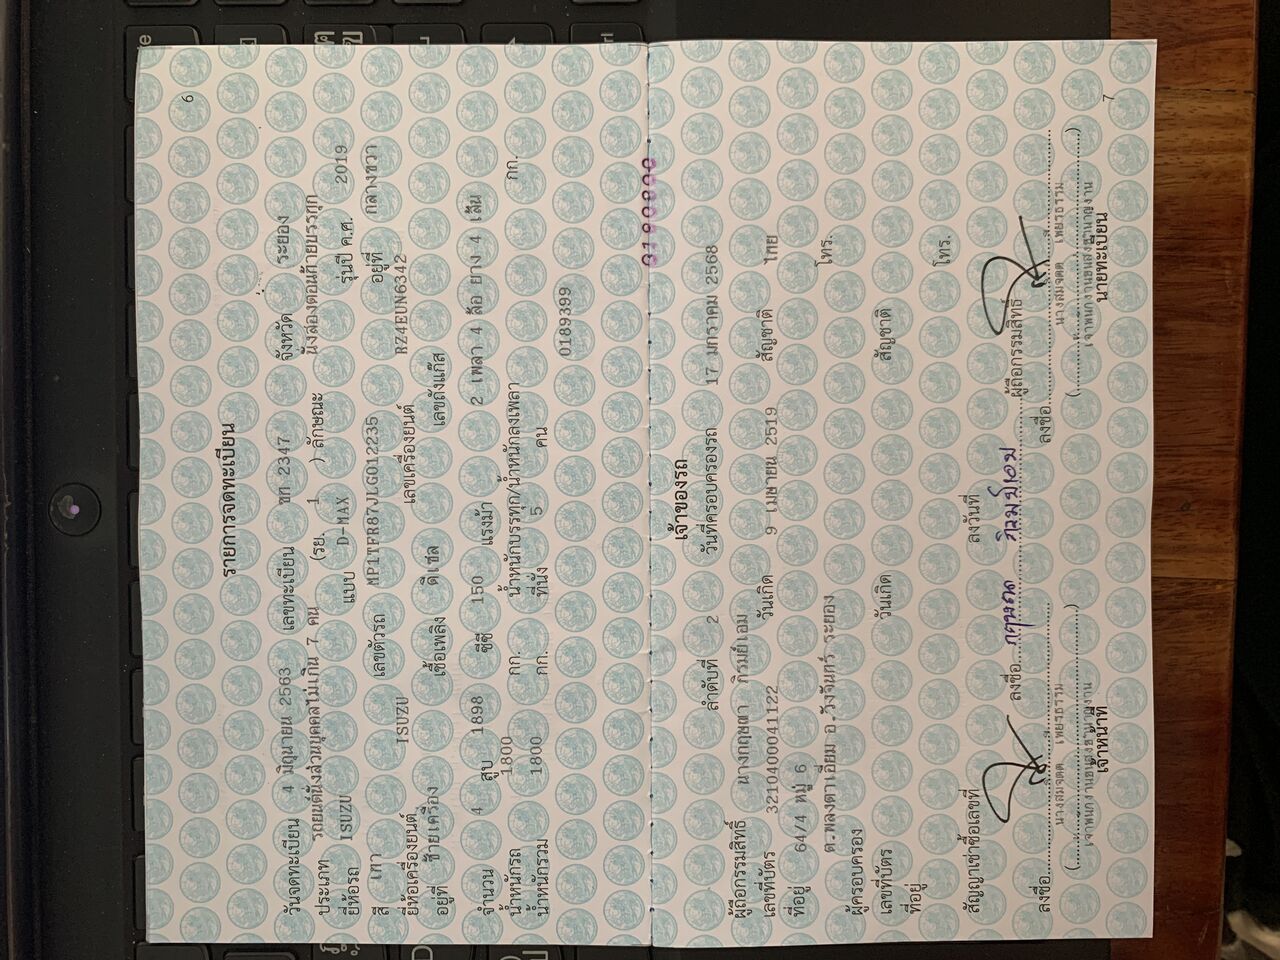 6
รายการจดทะเบียน
วันจดทะเบียน 4 มิถุนายน 2563 เลขทะเบียน ขก 2347 จังหวัด ระยอง
ประเภท รถยนต์นั่งส่วนบุคคลไม่เกิน 7 คน (รย. 1 ) ลักษณะ นั่งสองตอนท้ายบรรทุก
ยี่ห้อรถ ISUZU แบบ D-MAX รุ่นปี ค.ศ. 2019
สี เทา เลขตัวรถ MP1TFR87JLG012235 อยู่ที่ กลางขวา
ยี่ห้อเครื่องยนต์ ISUZU เลขเครื่องยนต์ RZ4EUN6342
อยู่ที่ ซ้ายเครื่อง เชื้อเพลิง ดีเซล เลขถังแก๊ส
จำนวน 4 สูบ 1898 ซีซี 150 แรงม้า 2 เพลา 4 ล้อ ยาง 4 เส้น
น้ำหนักรถ 1800 กก. น้ำหนักบรรทุก/น้ำหนักลงเพลา กก.
น้ำหนักรวม 1800 กก. ที่นั่ง 5 คน
0189399
เจ้าของรถ
ลำดับที่ 2 วันที่ครอบครองรถ 17 มกราคม 2568
ผู้ถือกรรมสิทธิ์ นางกฤษณา ภิรมย์เอม
เลขที่บัตร 3210400041122 วันเกิด 9 เมษายน 2519 สัญชาติ ไทย
ที่อยู่ 64/4 หมู่ 6 โทร.
ต.พลงตาเอี่ยม อ.วังจันทร์ ระยอง
ผู้ครอบครอง
เลขที่บัตร วันเกิด สัญชาติ
ที่อยู่ โทร.
สัญญาเช่าซื้อเลขที่ ลงวันที่
ลงชื่อ กฤษณา ภิรมย์เอม ผู้ถือกรรมสิทธิ์
ลงชื่อ ลงชื่อ
เจ้าหน้าที่ นายทะเบียน
7